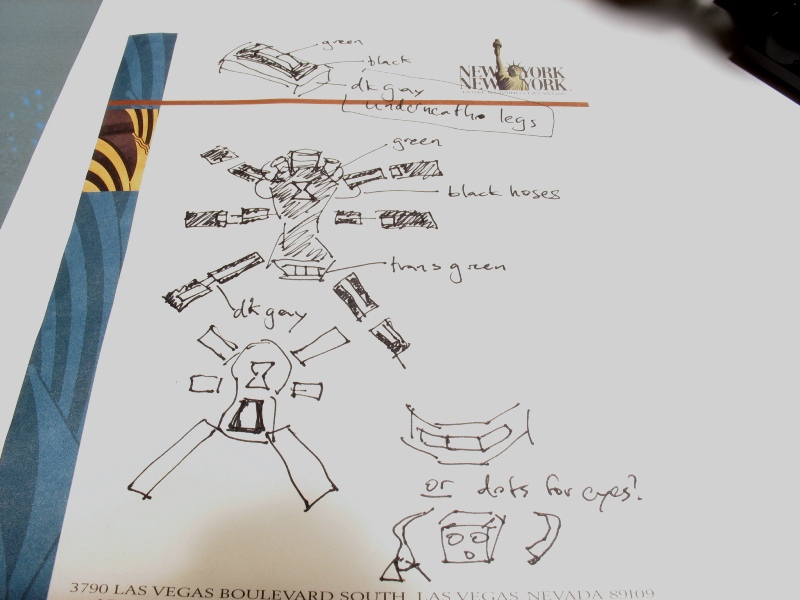 green
black
dk gay
underneath legs
NEW YORK
NEW YORK
green
black hoses
trans green
dk gay
or dots for eyes?
3790 LAS VEGAS BOULEVARD SOUTH, LAS VEGAS, NEVADA 89109